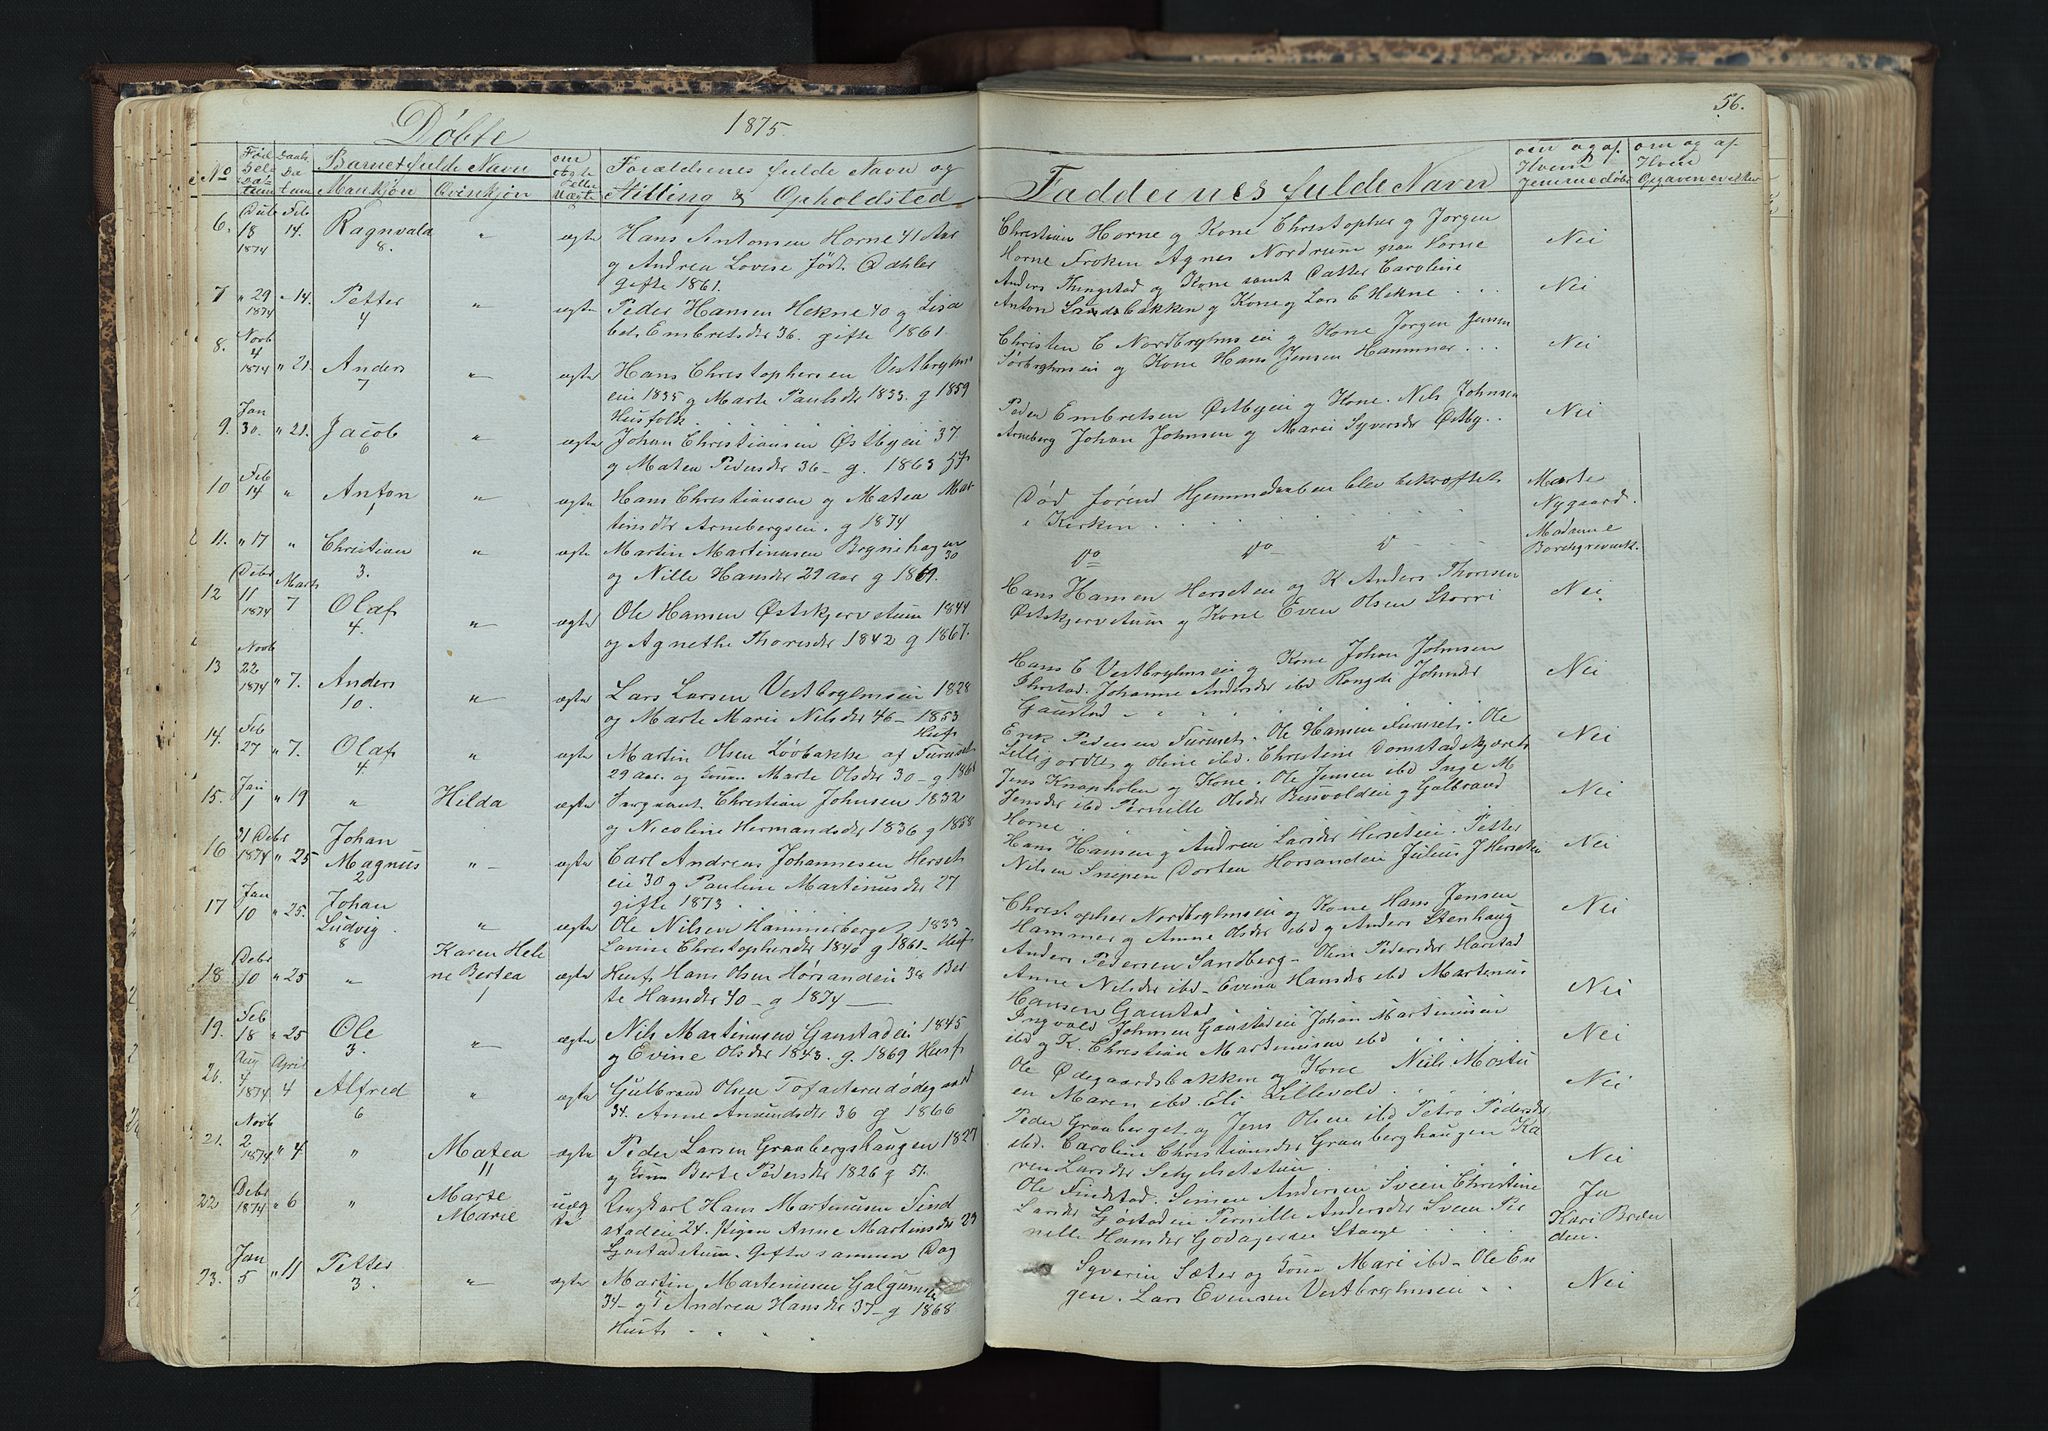 56.
Døbte 1875.
No
Barnets fulde Navn
Mankjøn Qvinkjøn
Forældrenes fulde Navn og
Stilling & Opholdsted
Faddernes fulde Navn
om og af
Hvem
Hjemmedøbt
om og af
Hvem
6. Debr 18 1874 Feb 14. Ragnvald 8. " ægte Hans Antonsen Horne 41 Aar
og Andrea Lovise født Dahler
gifte 1861.
Christian Horne og Kone Christopher og Jørgen
Horne Frøken Agnes Nordrum paa Horne
Nei
7 " 29 1874 " 14. Petter 4 " ægte Peder Hansen Hekne 40 og Lisa
bet Embretsdr 36. gifte 1861
Anders Kungstad og Kone samt Datter Caroline
Anton Landsbakken og Kone og Lars C Hekne . . .
Nei
8. Novb 4 1874 " 21. Anders 7 " ægte Hans Christophersen Vestbyhms
eie 1835 og Marte Paulsdr 1833. g 1859
Husfolk . . .
Christen C Nordbyhmseie og Kone Jørgen Jensen
Sørbyhmseie og Kone Hans Jensen Hammer . . .
Nei
9. Jan 30. " 21. Jacob 6 " ægte Johan Christiansen Østbyeie 37.
og Maten Pedersdr 36 - g. 1863 Hf
Peder Embretsen Østbyeie og Kone. Nils Johnsen
Arneberg Johan Johnsen og Marie Syversdr Østby . .
Nei
10 Feb 14 " Anton 1 " ægte Hans Christiansen og Matea Mar
tinsdr Arnebergseie. g 1874
Død førend Hjemmedaaben blev bekræftet
i Kirken . . . .
Marte
Nygaard.
11. " 17 " Christian 3. " ægte Martin Martinusen Bognhagen 30
og Nille Hansdr 29 aar g 1869.
Do Do D
Madame
Borchgrevink.
12 Debr 11 1874 Marts 7 Olaf 4. " ægte Ole Hansen Østskjervstuen 1844
og Agnethe Thoresdr 1842 g 1867.
Hans Hansen Herseteie og K Anders Thoresen
Østskjervstuen og Kone Even Olsen Storri
Nei.
13 Novb 22 1874 " 7. Anders 10. " ægte Lars Larsen Vestbyhmseie 1828
og Marte Marie Nilsdr 46 - 1853
Husf
Hans C Vestbyhmseie og Kone Johan Johnsen
Johanne Andersdr ibd Johnsdr
Gaustad " " "
Nei
14. Feb 27 " 7. Olaf 4. " ægte Martin Olsen Løvbakke af Furuset
29 aar. og Kone Marte Olsdr 30 - g 1868
Erik Pedersen Furuset. Ole Hansen Furuset. Ole
Lillejordet og Oline ibd. Christine Domstadskjæret
Nei
15. Jan 1 " 19 " Hilda ægte Sergeant Christian Johnsen 1832
og Nicoline Hermandsdr 1836 g 1858
Jens Knapholen og Kone. Ole Jensen ibd Inge M
Jensdr ibd Pernille Olsdr Risvoldeie og Gulbrand
Horne
Nei
16 31 Debr 1874 " 25 Johan
Magnus 2 " ægte Carl Andreas Johannesen Herset
eie 30 og Pauline Martinusdr 27
gifte 1873 . .
Hans Hansen og Andrea Larsdr Herseteie. Petter
Nilsen Snipen Dorten Horsandeie Julius J Herseteie
Nei
17 Jan 10 " 25. Johan
Ludvig. 8 " ægte Ole Nilsen Hammerberget 1833
Lovise Christophersdr 1840 g 1861 - Husf
Christopher Nordbyhmseie og Kone Hans Jensen
Hammer og Anne Olsdr ibd og Anders Stenhaug
Nei
18. Debr 10 " 25 " Karen Hele
ne Bertea 1 ægte Husf. Hans Olsen Horsandeie 38 Ber
te Hansdr 40 - g 1874 —
Anders Pedersen Sandberg - Oline Pedersdr Harstad
Anne Nilsdr ibd - Evena Hansdr ibd Martinus
Hansen Gaustad
Nei
19. Feb 18 " 25 Ole 3. " ægte Nils Martinusen Gaustadeie 1845,
og Evine Olsdr 1843. g. 1869 Husf
Ingvald Johnsen Gaustadeie Johan Martinusen
ibd og K. Christian Martinusen ibd . . . .
Nei
20. Aug 4 1874 April 4 Alfred 6 " ægte Gulbrand Olsen Tofasterudødegaard
34. Anne Amundsdr 36 g 1866
Ole Ødegaardsbakken og Kone Niels Mostu
en Maren ibd. Eli Lillevold . . .
Nei
21. Novb 2 1874 " 4 " Matea 11 ægte Peder Larsen Graabergshaugen 1827
og Kone Berte Pedersdr 1826 g 51.
Peder Graaberget og Jens Olsen ibd Petro Pedersdr
ibd. Caroline Christiansdr Graaberghaugen Ka
ren Larsdr Sehjelsetstuen
Nei
22 Debr 1874 " 6 " Marte
Marie uæg
te Ungkarl Hans Martinusen Find
stadeie 24. Pigen Anne Martinsdr 23
Gjøstadstuen. Gifte samme Dag
Ole Findstad. Simen Andersen Sveen Christine
Larsdr Gjøstadeie Pernille Andersdr Sveen Per
nille Hansdr Godager Stange
Ja
Kari Braa
den.
23. Jan 5 " 11 Petter 3. " ægte Martin Martinusen Galgum
34 - og Andrea Hansdr 37 - g 1868
Husf. . "
Syverin Sæter og Kone Mari ibd - Ole En
gen. Lars Evensen Vestbyhmseie . . .
Nei